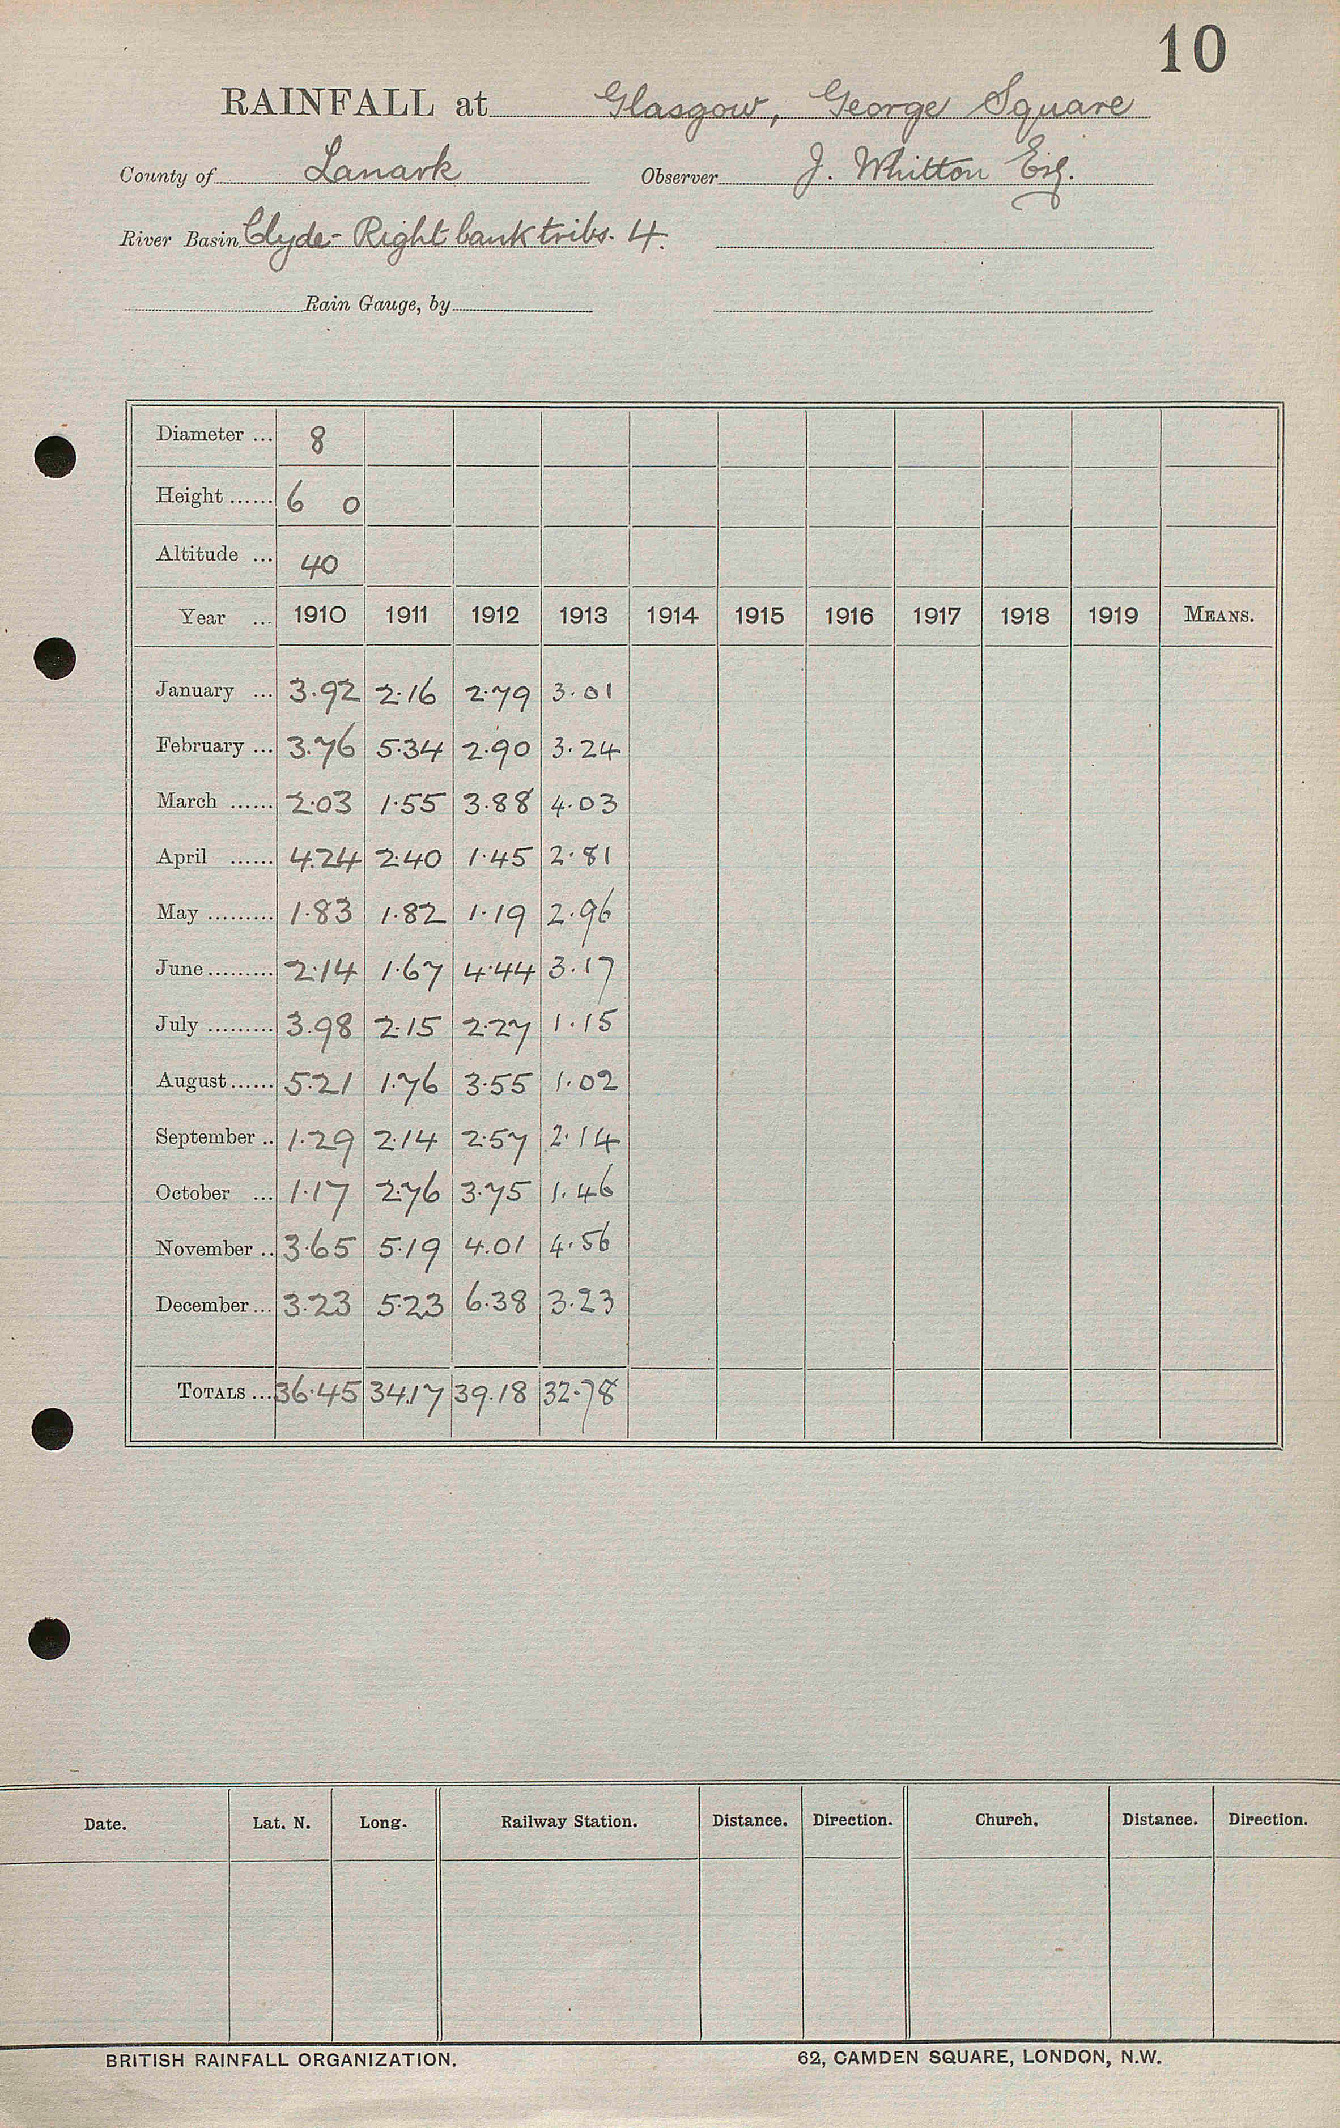 10
RAINFALL at Glasgow, George Square
County of Lanark Observer J. Whitton Esq.
River Basin Clyde - Right bank tribs. 4.
Rain Gauge, by
Diameter ... 8
Height ...... 6 0
Altitude ... 40
Year ... 1910 1911 1912 1913 1914 1915 1916 1917 1918 1919 MEANS.
January ... 3.92 2.16 2.79 3.01
February ... 3.76 5.34 2.90 3.24
March ...... 2.03 1.55 3.88 4.03
April ...... 4.24 2.40 1.45 2.81
May ......... 1.83 1.82 1.19 2.96
June ......... 2.14 1.67 4.44 3.17
July ......... 3.98 2.15 2.27 1.15
August ...... 5.21 1.76 3.55 1.02
September .. 1.29 2.14 2.57 2.14
October ... 1.17 2.76 3.75 1.46
November .. 3.65 5.19 4.01 4.56
December ... 3.23 5.23 6.38 3.23
TOTALS ... 36.45 34.17 39.18 32.78
Date. Lat. N. Long. Railway Station. Distance. Direction. Church. Distance. Direction.
BRITISH RAINFALL ORGANIZATION. 62, CAMDEN SQUARE, LONDON, N.W.